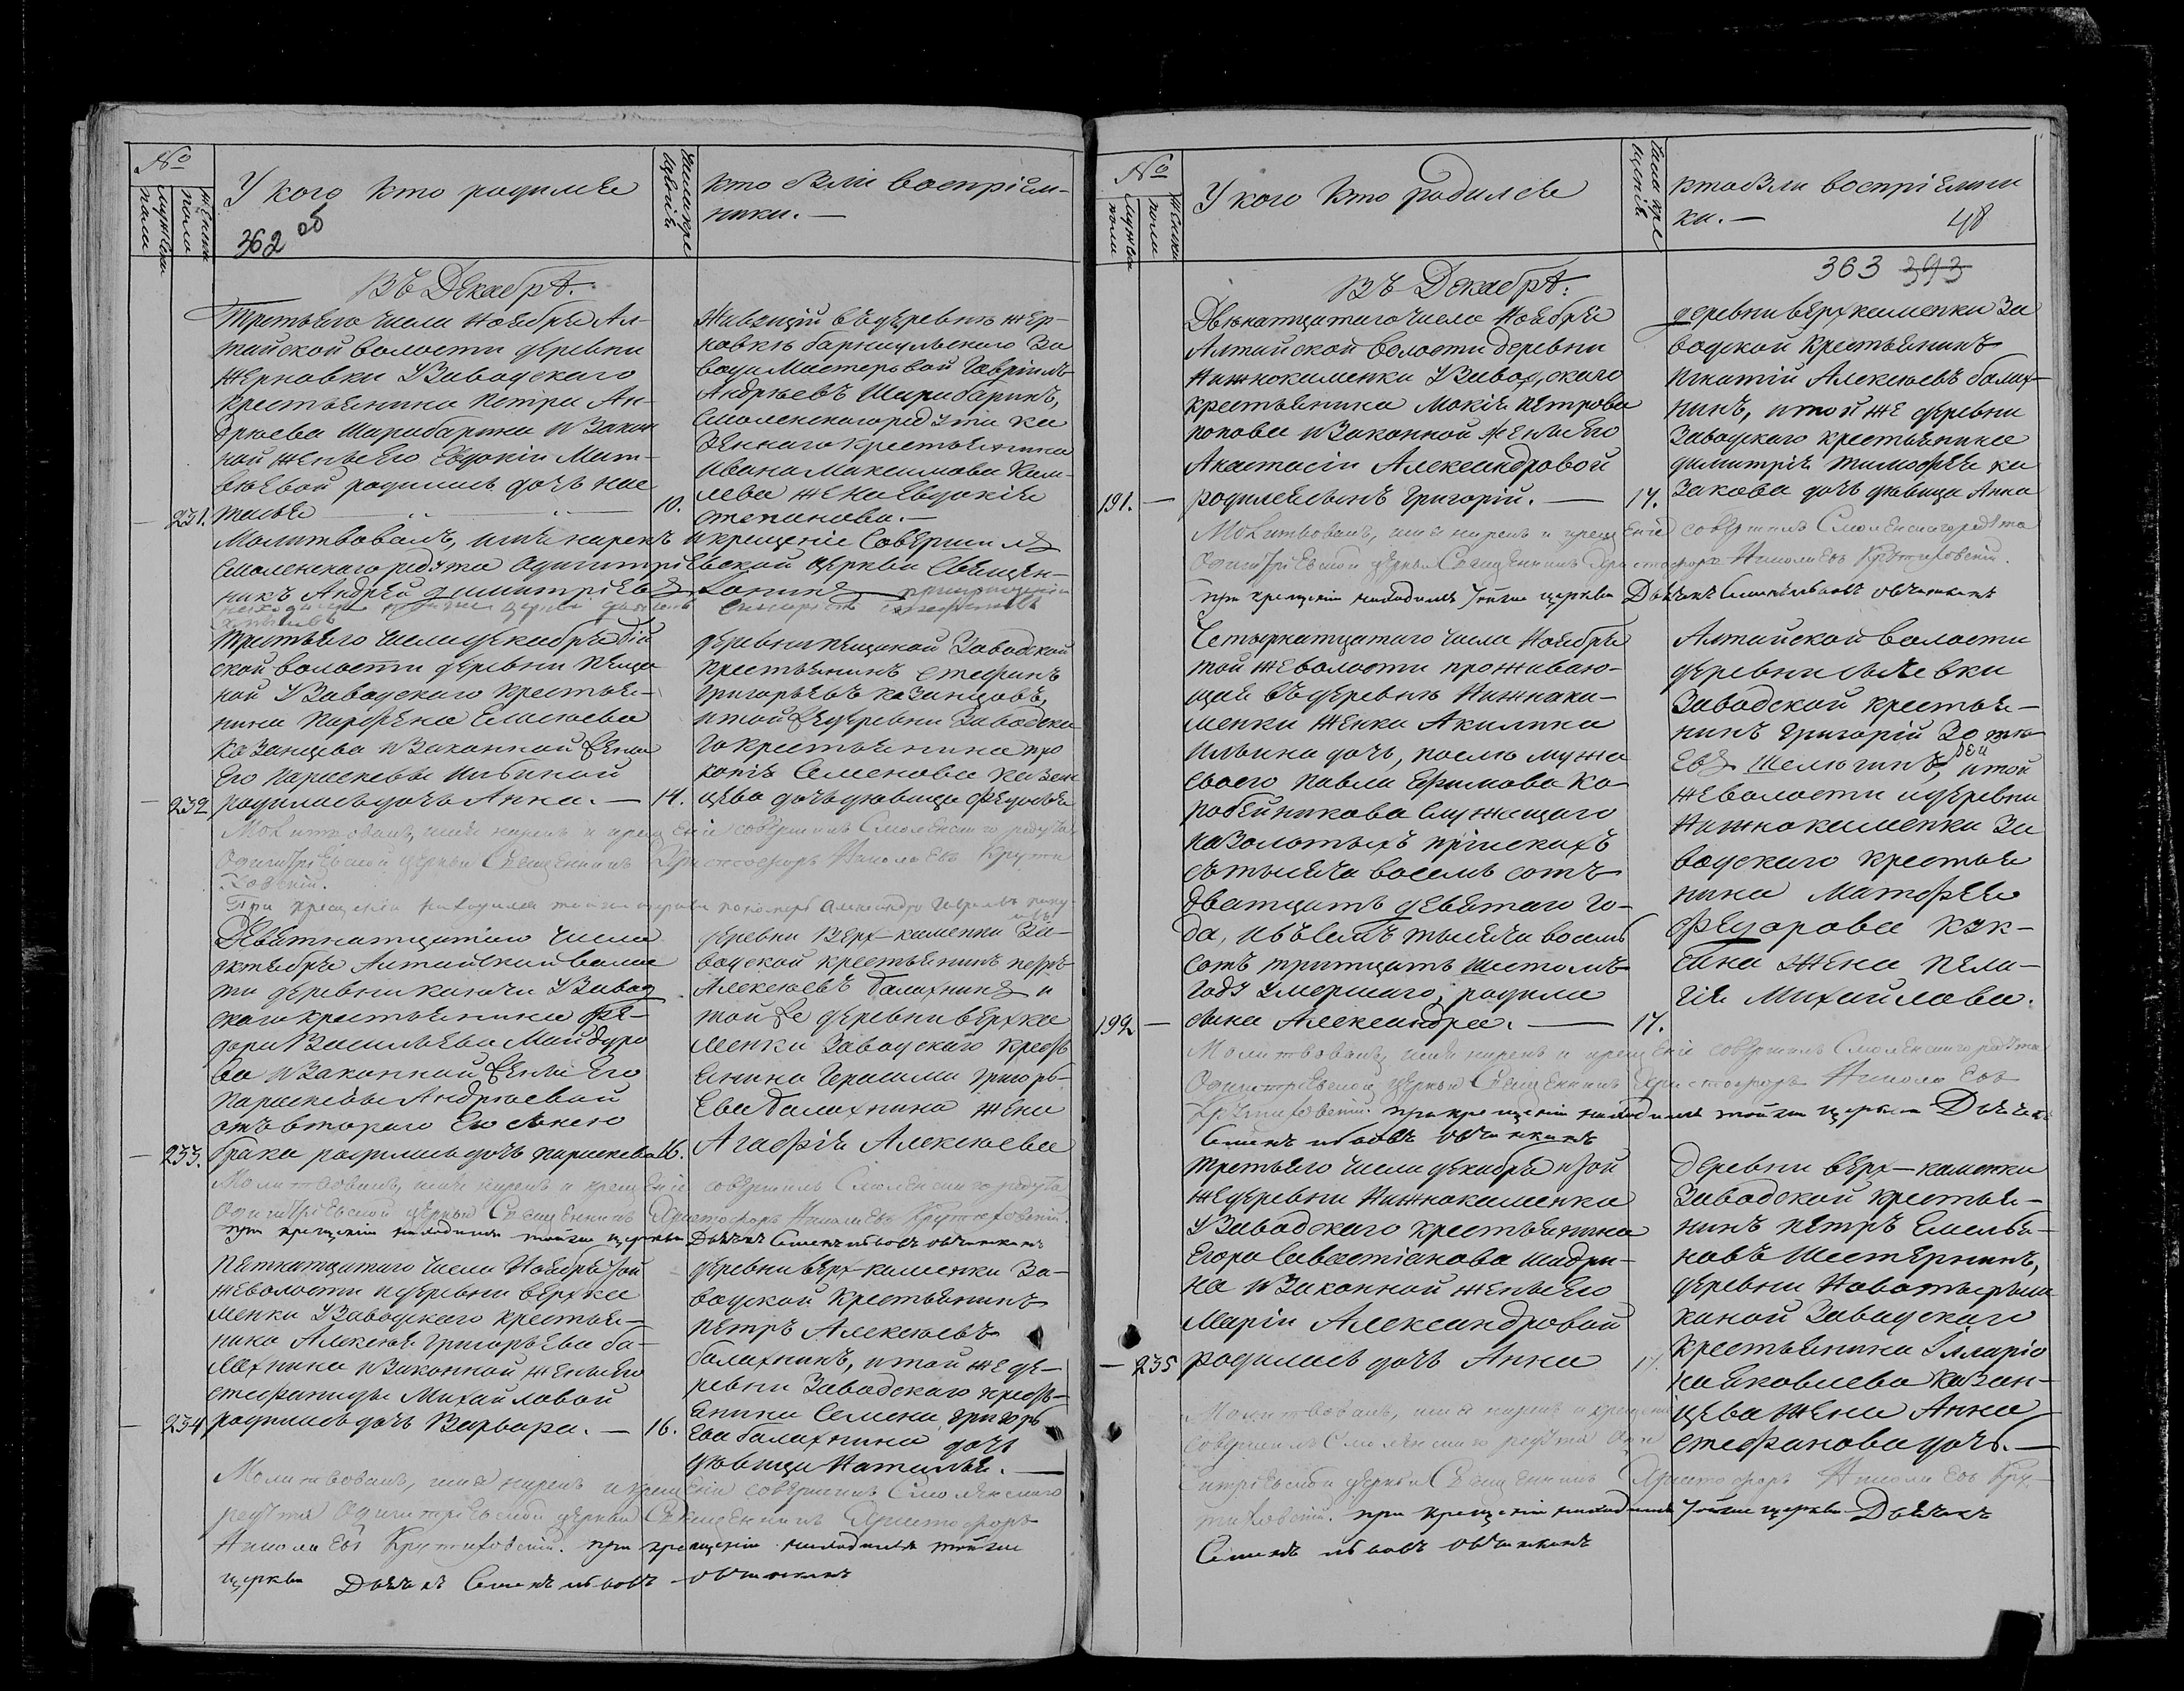 №
женска пола
мужеска пола
У кого кто родился
362 об
Число крещенія
кто были воспріем-
ники. —
Въ Декабрѣ.
Третьяго числа Ноября Ал-
тайской волости деревни
Жерновки У Заводскаго
Крестьянина Петра Ан-
дрѣева Шарабарина и закон
ной жены Его Евдокіи Мат-
вѣевой родилась дочь Нас
231. тасья 10.
Живущій въ деревнѣ Жер-
новкѣ барнаульскаго За
вода Мастеровой Гаврилъ
Андрѣевъ Шарабаринъ,
Смоленскаго редута ка
Ивана Максимова
жена Евдокія
степанова. —
Молитвовалъ, имя нарекъ и крещеніе Совершилъ
Смоленскаго редута Одигитріевской Церкви Священ-
никъ Андрей Димитріевъ
Третьяго числа декабря бій
ской волости деревни Песча
ной У Заводскаго Крестья-
нина Парфена Елисѣева
Казанцева и Законной жены
Его Параскевы
232. родилась дочь Анна. — 14.
деревни песчаной Заводской
крестьянинъ Стефанъ
Григорьевъ Казанцовъ,
и той же деревни Заводска
го крестьянина про
копія Семенова Казан
цева дочь дѣвица Федосья
Молитвовалъ, имя нарекъ и крещеніе совершилъ Смоленскаго редута
Одигитріевской церкви Священникъ Христофоръ Николаевъ Крути
ховскій.
При крещеніи находился той же церкви пономарь Александръ
Девятнатцатаго числа
октября Алтайской волос
ти деревни У Завод
скаго крестьянина Фе-
дора Васильева Майдуро
ва и Законной жены Его
Параскевы Андрѣевой
отъ втораго Ею
233. брака родилась дочь параскева 16.
деревни Верх-каменки За-
водской крестьянинъ петръ
Алексѣевъ балахнинъ и
той же деревни верхка
менки Заводскаго кресть
янина Герасима Григорь-
Ева балахнина жена
Агафія Алексѣева
Молитвовалъ, имя нарекъ и крещеніе совершилъ Смоленскаго редута
Одигитріевской церкви Священникъ Христофоръ Николаевъ Крутиховскій.
при крещеніи находился той же церкви Дьячекъ Семенъ Овчинкинъ
Пятнатцатаго числа Ноября той
же волости и деревни верхка
менки У Заводскаго крестья-
нина Алексѣя Григорьева ба-
лахнина и Законной жены Его
стефаниды Михайловой
234. родилась дочь Варвара. — 16.
деревни верх-каменки За-
водской Крестьянинъ
петръ Алексѣевъ
балахнинъ, и той же де-
ревни Заводскаго кресть-
янина Семена Григорь
Ева балахнина дочь
дѣвица Наталья. —
Молитвовалъ, имя нарекъ и крещеніе совершилъ Смоленскаго
редута Одигитріевской церкви Священникъ Христофоръ
Николаевъ Крутиховскій. при крещеніи находился той же
церкви Дьячекъ Семенъ Овчинкинъ
№
Мужеска поли
Женска поли
У кого Кто родился
Числа кре щенія
кто были воспріемни
ки. —
48
363 393
Въ Декабрѣ:
Двѣнатцатаго числа Ноября
Алтайской волости деревни
Нижнокаменки У Заводскаго
крестьянина Мокія петрова
попова и Законной жены Его
Анастасіи Александровой
191. — родился сынъ Григорій. — 17.
деревни верхкаменки За
водской Крестьянинъ
Игнатій Алексѣевъ балах-
нинъ, и той же деревни
Заводскаго крестьянина
димитрія тимофѣя ка
закова дочь дѣвица Анна
Молитвовалъ, имя нарекъ и крещеніе совершилъ Смоленскаго редута
Одигитріевской церкви Священникъ Христофоръ Николаевъ Крутиховскій.
при крещеніи находился той же церкви Дьячекъ Семенъ Овчинкинъ
Четырнатцатаго числа Ноября
той же волости проживаю-
щая въ деревнѣ Нижнека-
менки женка Акилина
Ильина дочь, послѣ мужа
своего павла Ефимова Ка-
робейникова служащаго
на Золотыхъ пріискахъ
съ тысяча восемь сотъ
дватцать девятаго Го-
да, и въ тысяча восемь
сотъ тритцать шестомъ
Году умершаго, родила
192 — сына Александра. — 17.
Алтайской волости
деревни
Заводской крестья-
нинъ Григорій
Евъ Шелюгинъ, и той
же волости и деревни
Нижнокаменки За
водскаго крестья
нина Матфѣя
Федорова
жена Пела-
гія Михайлова.
Молитвовалъ, имя нарекъ и крещеніе совершилъ Смоленскаго редута
Одигитріевской церкви Священникъ Христофоръ Николаевъ
Крутиховскій. при крещеніи находился той же церкви Дьячекъ
Семенъ Овчинкинъ
Третьяго числа декабря той
же деревни Нижнокаменки
У Заводскаго крестьянина
Егора Савастіанова Шадри-
на и Законной жены Его
Маріи Александровой
— 235 родилась дочь Анна 17.
Деревни верх-каменки
Заводской крестья-
нинъ петръ Емелья-
новъ Шестернинъ,
деревни Новотырыш
киной Заводскаго
крестьянина Илларіо
на Яковлева Казан-
цева жена Анна
стефанова дочь. —
Молитвовалъ, имя нарекъ и крещеніе
совершилъ Смоленскаго редута Оди
гитріевской церкви Священникъ Христофоръ Николаевъ Кру-
тиховскій. при крещеніи находился той же церкви Дьячекъ
Семенъ Овчинкинъ